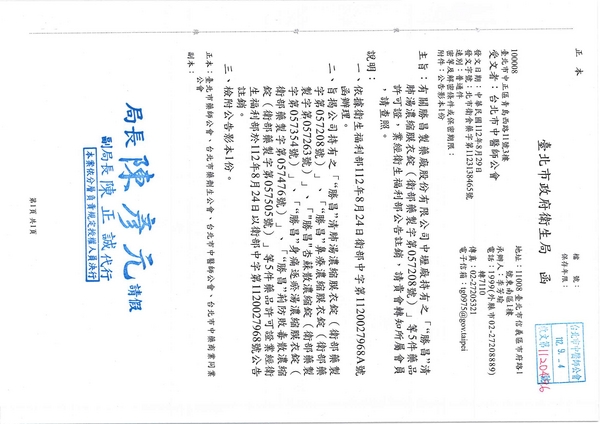 正本
檔 號：
保存年限：
臺北市政府衛生局 函
地址：11008 臺北市信義區市府路1
號東南區1樓
承辦人：李芳瑜
電話：1999(外縣市02-27208889)
轉7110
傳真：02-27205321
電子信箱：tg0975@gov.taipei
台北市中醫師公會
112. 9. -4
收文第
100008
臺北市中正區青島西路11號3樓
受文者：台北市中醫師公會
發文日期：中華民國112年8月29日
發文字號：北市衛食藥字第1123138465號
速別：普通件
密等及解密條件或保密期限：
附件：公告影本1份
主旨：有關勝昌製藥廠股份有限公司中壢廠持有之「“勝昌”清
肺湯濃縮膜衣錠（衛部藥製字第057208號）」等5件藥品
許可證，業經衛生福利部公告註銷，請貴會轉知所屬會員
，請查照。
說明：
一、依據衛生福利部112年8月24日衛部中字第1120027968A號
函辦理。
二、旨揭公司持有之「“勝昌”清肺湯濃縮膜衣錠（衛部藥製
字第057208號）」、「“勝昌”鼻療濃縮膜衣錠（衛部藥
製字第057263號）」、「“勝昌”杏蘇散濃縮錠（衛部藥製
字第057354號）」、「“勝昌”身痛逐瘀湯濃縮膜衣錠（
衛部藥製字第057476號）」、「“勝昌”荊防敗毒散濃縮
錠（衛部藥製字第057505號）」等5件藥品許可證業經衛
生福利部於112年8月24日以衛部中字第1120027968號公告
註銷。
三、檢附公告影本1份。
正本：臺北市藥師公會、台北市藥劑生公會、台北市中醫師公會、台北市中藥商業同業
公會
副本：
局長 陳彥元 請假
副局長 陳正誠 代行
本案依分層負責規定授權人員決行
第1頁 共1頁